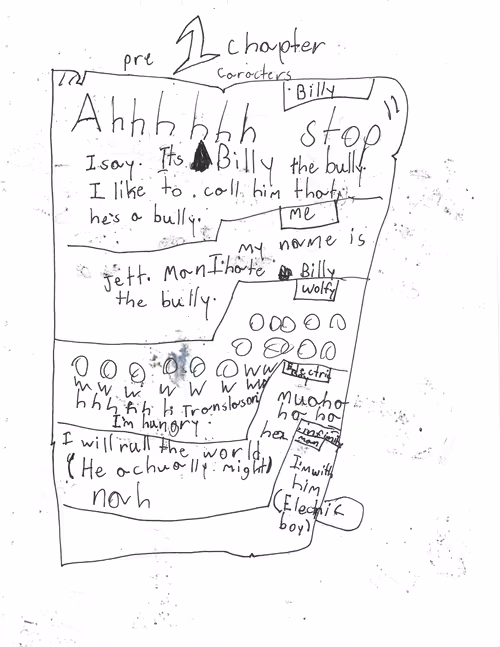 pre 1 chapter
Caracters
Billy
"Ahhhhhh stop"
I say. Its Billy the bully.
I like to call him that,
he's a bully.
me
my name is
Jett. Man I hate Billy
the bully.
Wolfy
OOOOO
OOOO
OOOOOOww
wwwwwww
hhhhhh Translason
I'm hungry.
Electric
muaha
ha ha
ha
I will rull the world
(He achually might)
nah
man
I'm with
him
(Electric
boy)